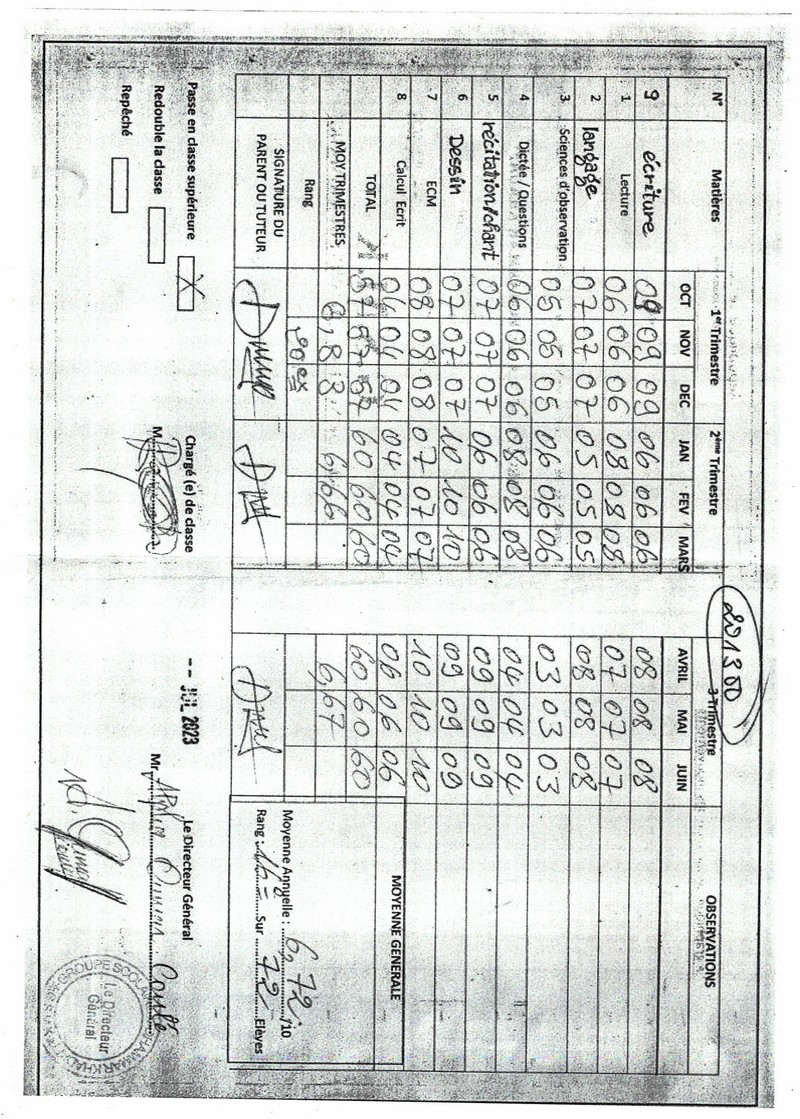 201300
N° Matières 1er Trimestre 2ème Trimestre 3 Trimestre OBSERVATIONS
OCT NOV DEC JAN FEV MARS AVRIL MAI JUIN
9 écriture 09 09 09 06 06 06 08 08 08
1 Lecture 06 06 06 08 08 08 07 07 07
2 langage 07 07 07 05 05 05 08 08 08
3 Sciences d'observation 05 05 05 06 06 06 03 03 03
4 Dictée / Questions 06 06 06 08 08 08 04 04 04
5 récitation/chant 07 07 07 06 06 06 09 09 09
6 Dessin 07 07 07 10 10 10 09 09 09
7 ECM 08 08 08 07 07 07 10 10 10
8 Calcul Ecrit 04 04 04 04 04 04 06 06 06
TOTAL 57 57 60 60 60 60 60 60
MOY TRIMESTRES 6,83 6,66 6,67
Rang 20ex
SIGNATURE DU PARENT OU TUTEUR
MOYENNE GENERALE
Moyenne Annuelle : 6,72 /10
Rang : 16e Sur 72 Elèves
Passe en classe supérieure X
Redouble la classe
Repêché
Chargé (e) de classe
M.
-- JUL 2023
Le Directeur Général
Mr
GROUPE SCOLA
Le Directeur Général